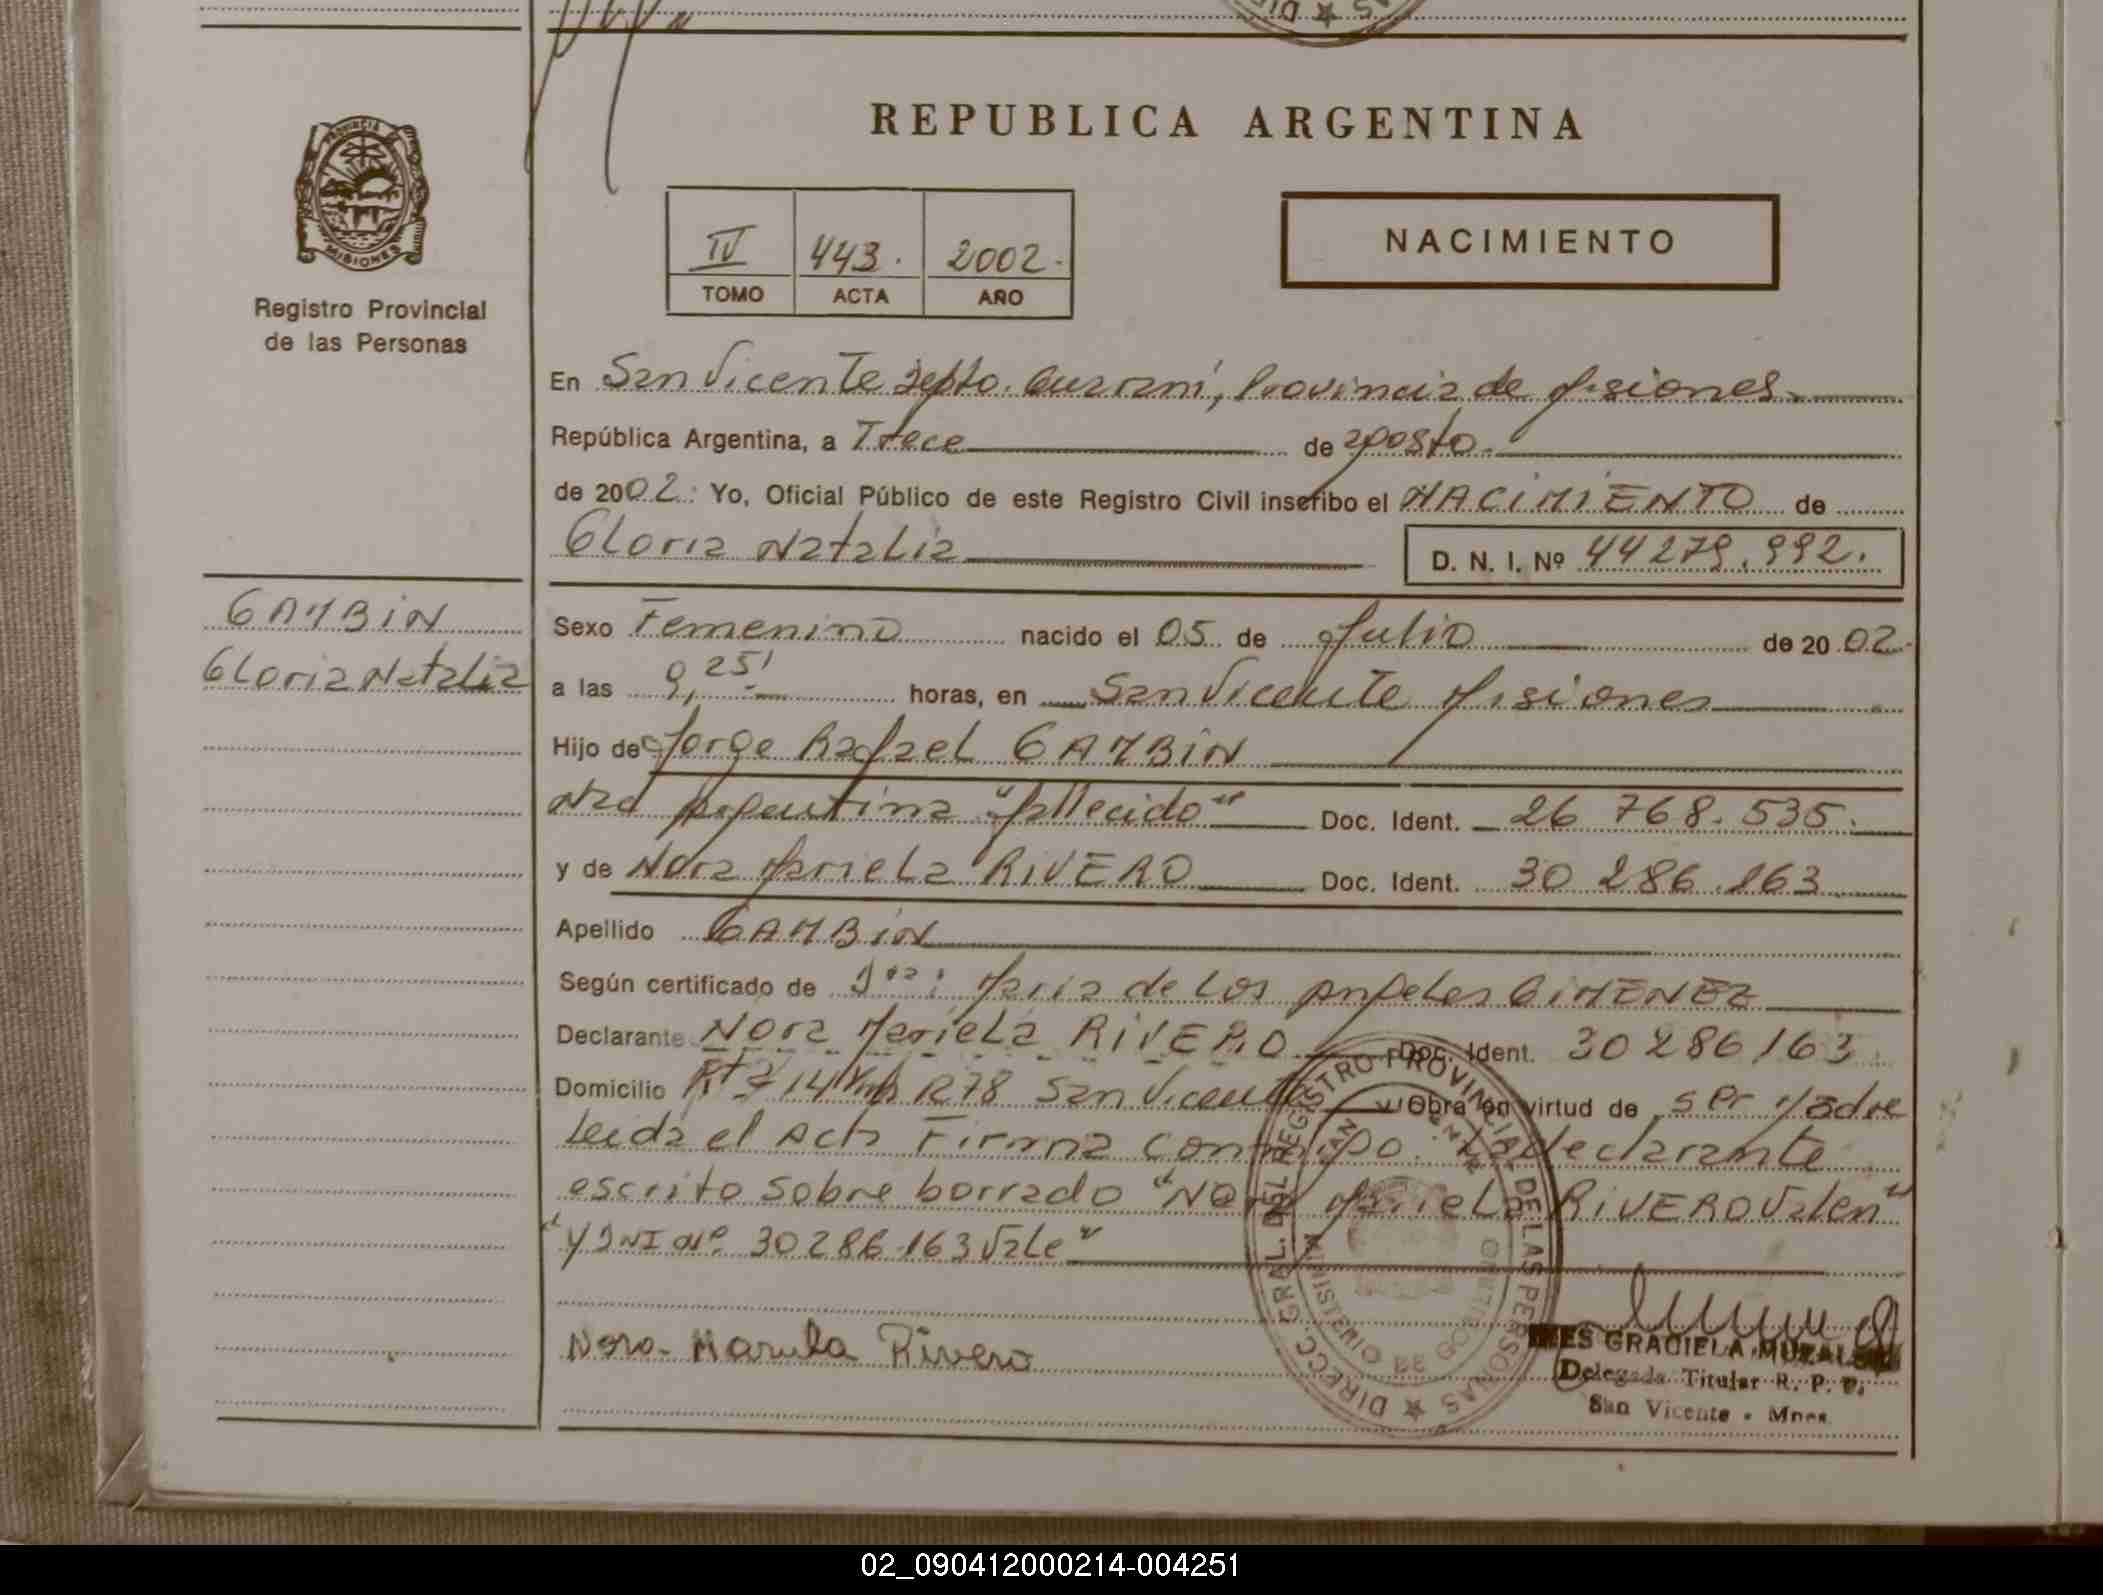 REPUBLICA ARGENTINA
PROVINCIA DE MISIONES
Registro Provincial
de las Personas
IV 443. 2002.
TOMO ACTA AÑO
NACIMIENTO
En San Vicente Depto. Guaraní, Provincia de Misiones
República Argentina, a Trece de agosto.
de 2002. Yo, Oficial Público de este Registro Civil inscribo el NACIMIENTO de
Gloria Natalia
D. N. I. Nº 44279.992.
GAMBIN
Gloria Natalia
Sexo Femenino nacido el 05 de Julio de 2002.
a las 9,25' horas, en San Vicente Misiones
Hijo de Jorge Rafael GAMBIN
Nac Argentina "fallecido" Doc. Ident. 26 768.535.
y de Nora Mariela RIVERO Doc. Ident. 30 286.163
Apellido GAMBIN
Según certificado de Dra: Maria de los Angeles GIMENEZ
Declarante Nora Mariela RIVERO Doc. Ident. 30286163
Domicilio 14 Km R78 San Vicente Obra en virtud de ser Madre
Leida el Acta Firma Conmigo. La declarante
escrito sobre borrado "Nora Mariela RIVERO Valen"
"Y DNI Nº 30286163 Vale"
Nora Mariela Rivero
DIRECC. GRAL. DEL REGISTRO PROVINCIAL DE LAS PERSONAS
MINISTERIO DE GOBIERNO
SAN VICENTE
GRACIELA
Delegada Titular R. P. P.
San Vicente - Mnes.
02_090412000214-004251